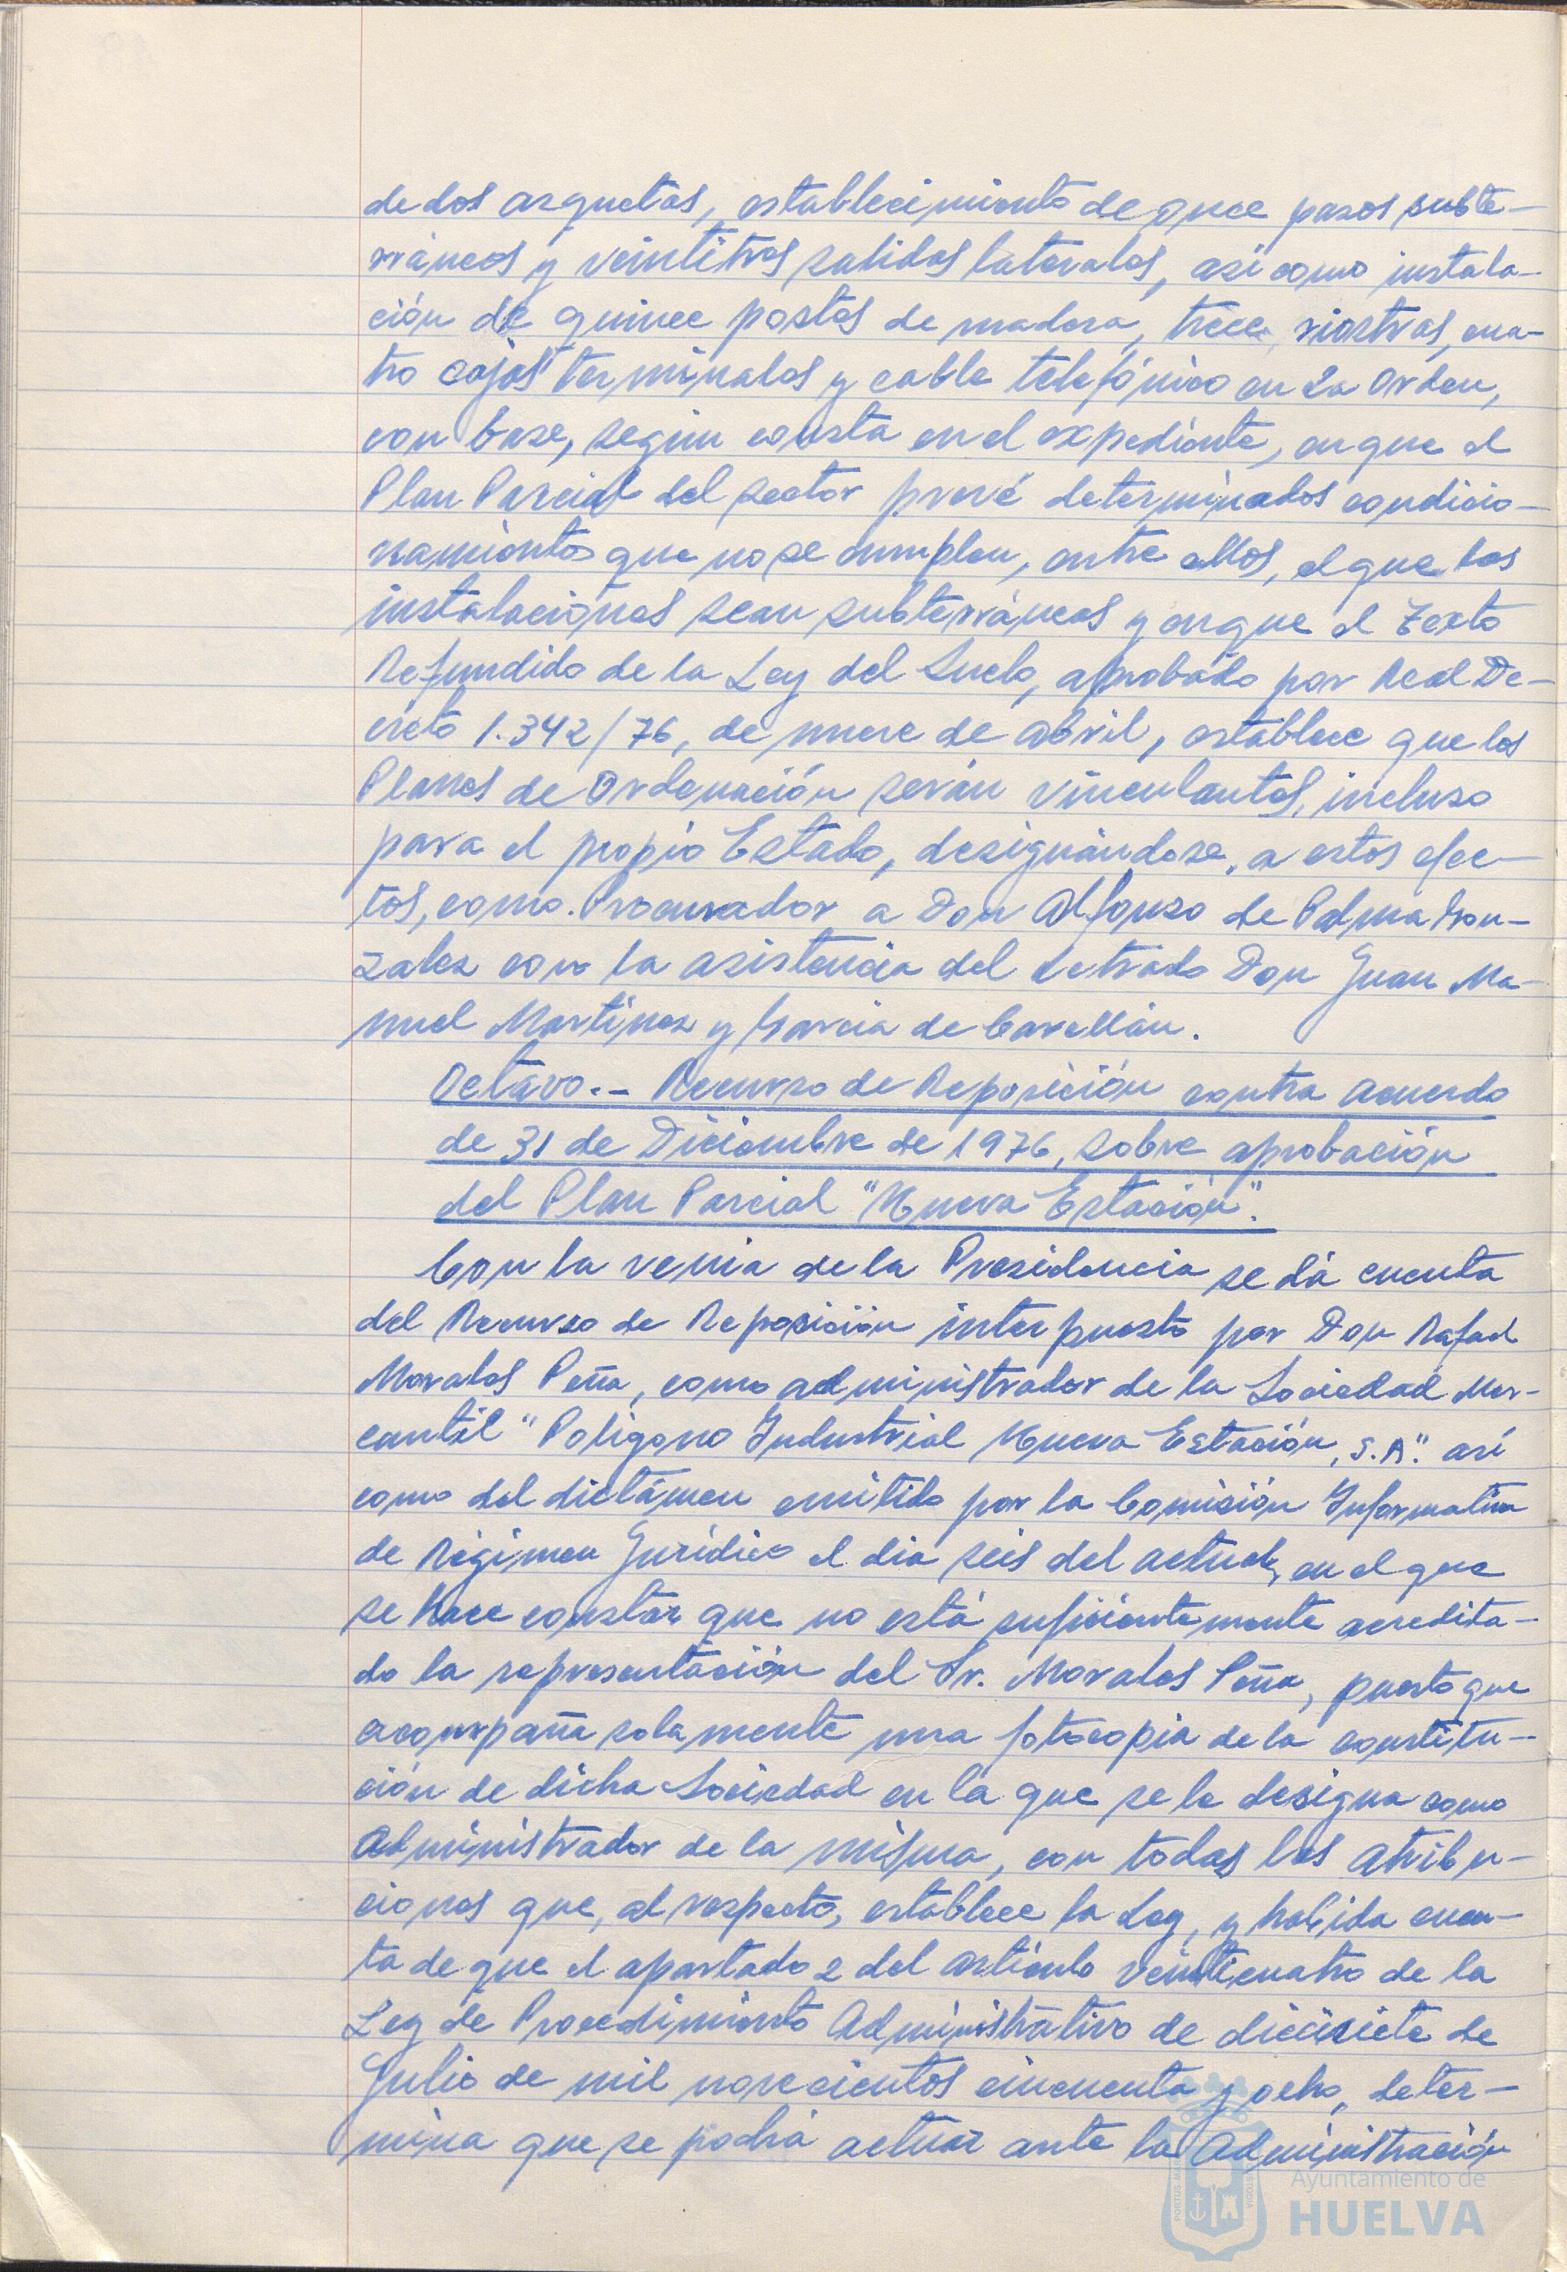 de dos arquetas, establecimiento de once pasos subte-
rráneos y veintitres salidas laterales, asi como instala-
ción de quince postes de madera, trece riostras, cua-
tro cajas terminales y cable telefónico en La Orden,
con base, segun consta en el expediente, en que el
Plan Parcial del sector prevé determinados condicio-
namientos que no se cumplen, entre ellos, el que las
instalaciones sean subterráneas y en que el Texto
Refundido de la Ley del Suelo, aprobado por Real De-
creto 1.342/76, de nueve de abril, establece que los
Planes de Ordenación serán vinculantes, incluso
para el propio Estado, designándose, a estos efec-
tos, como Procurador a Don Alfonso de Palma Gon-
zalez con la asistencia del Letrado Don Juan Ma-
nuel Martinez y Garcia de Carellán.
Octavo.- Recurso de Reposición contra acuerdo
de 31 de Diciembre de 1976, sobre aprobación
del Plan Parcial "Nueva Estación".
Con la venia de la Presidencia se dá cuenta
del Recurso de Reposición interpuesto por Don Rafael
Morales Peña, como administrador de la Sociedad Mer-
cantil "Poligono Industrial Nueva Estación, S.A." así
como del dictámen emitido por la Comisión Informativa
de Régimen Juridico el dia seis del actual, en el que
se hace constar que no está suficientemente acredita-
do la representación del Sr. Morales Peña, puesto que
acompaña solamente una fotocopia de la constitu-
ción de dicha Sociedad en la que se le designa como
Administrador de la misma, con todas las atribu-
ciones que, al respecto, establece la Ley, y habida cuen-
ta de que el apartado 2 del artículo veinticuatro de la
Ley de Procedimiento Administrativo de diecisiete de
Julio de mil novecientos cincuenta y ocho, deter-
mina que se podrá actuar ante la Administración
Ayuntamiento de
HUELVA